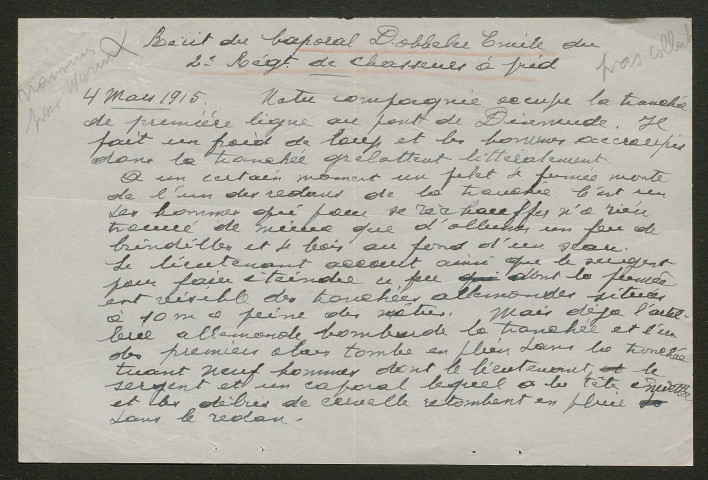 Récit du Caporal Dobbeler Emile du
2e Régt. de Chasseurs à pied
pour
pas
4 Mars 1915. Notre compagnie occupe la tranchée
de première ligne au pont de Dixmude. Il
fait un froid de loup et les hommes accroupis
dans la tranchée grelottent littéralement
A un certain moment un filet de fumée monte
de l'un des redans de la tranchée C'est un
des hommes qui pour se réchauffer n'a rien
trouvé de mieux que d'allumer un feu de
brindilles et de bois au fond d'un seau.
Le lieutenant accourt ainsi que le sergent
pour faire éteindre ce feu qui dont la fumée
est visible des tranchées allemandes situées
à 10 m à peine des notres. Mais déja l'artil-
lerie allemande bombarde la tranchée et l'un
des premiers obus tombe en plein dans la tranchée
tuant neuf hommes dont le lieutenant et le
sergent et un caporal lequel a la tête émiettée
et les débris de cervelle retombent en pluie
dans le redan.